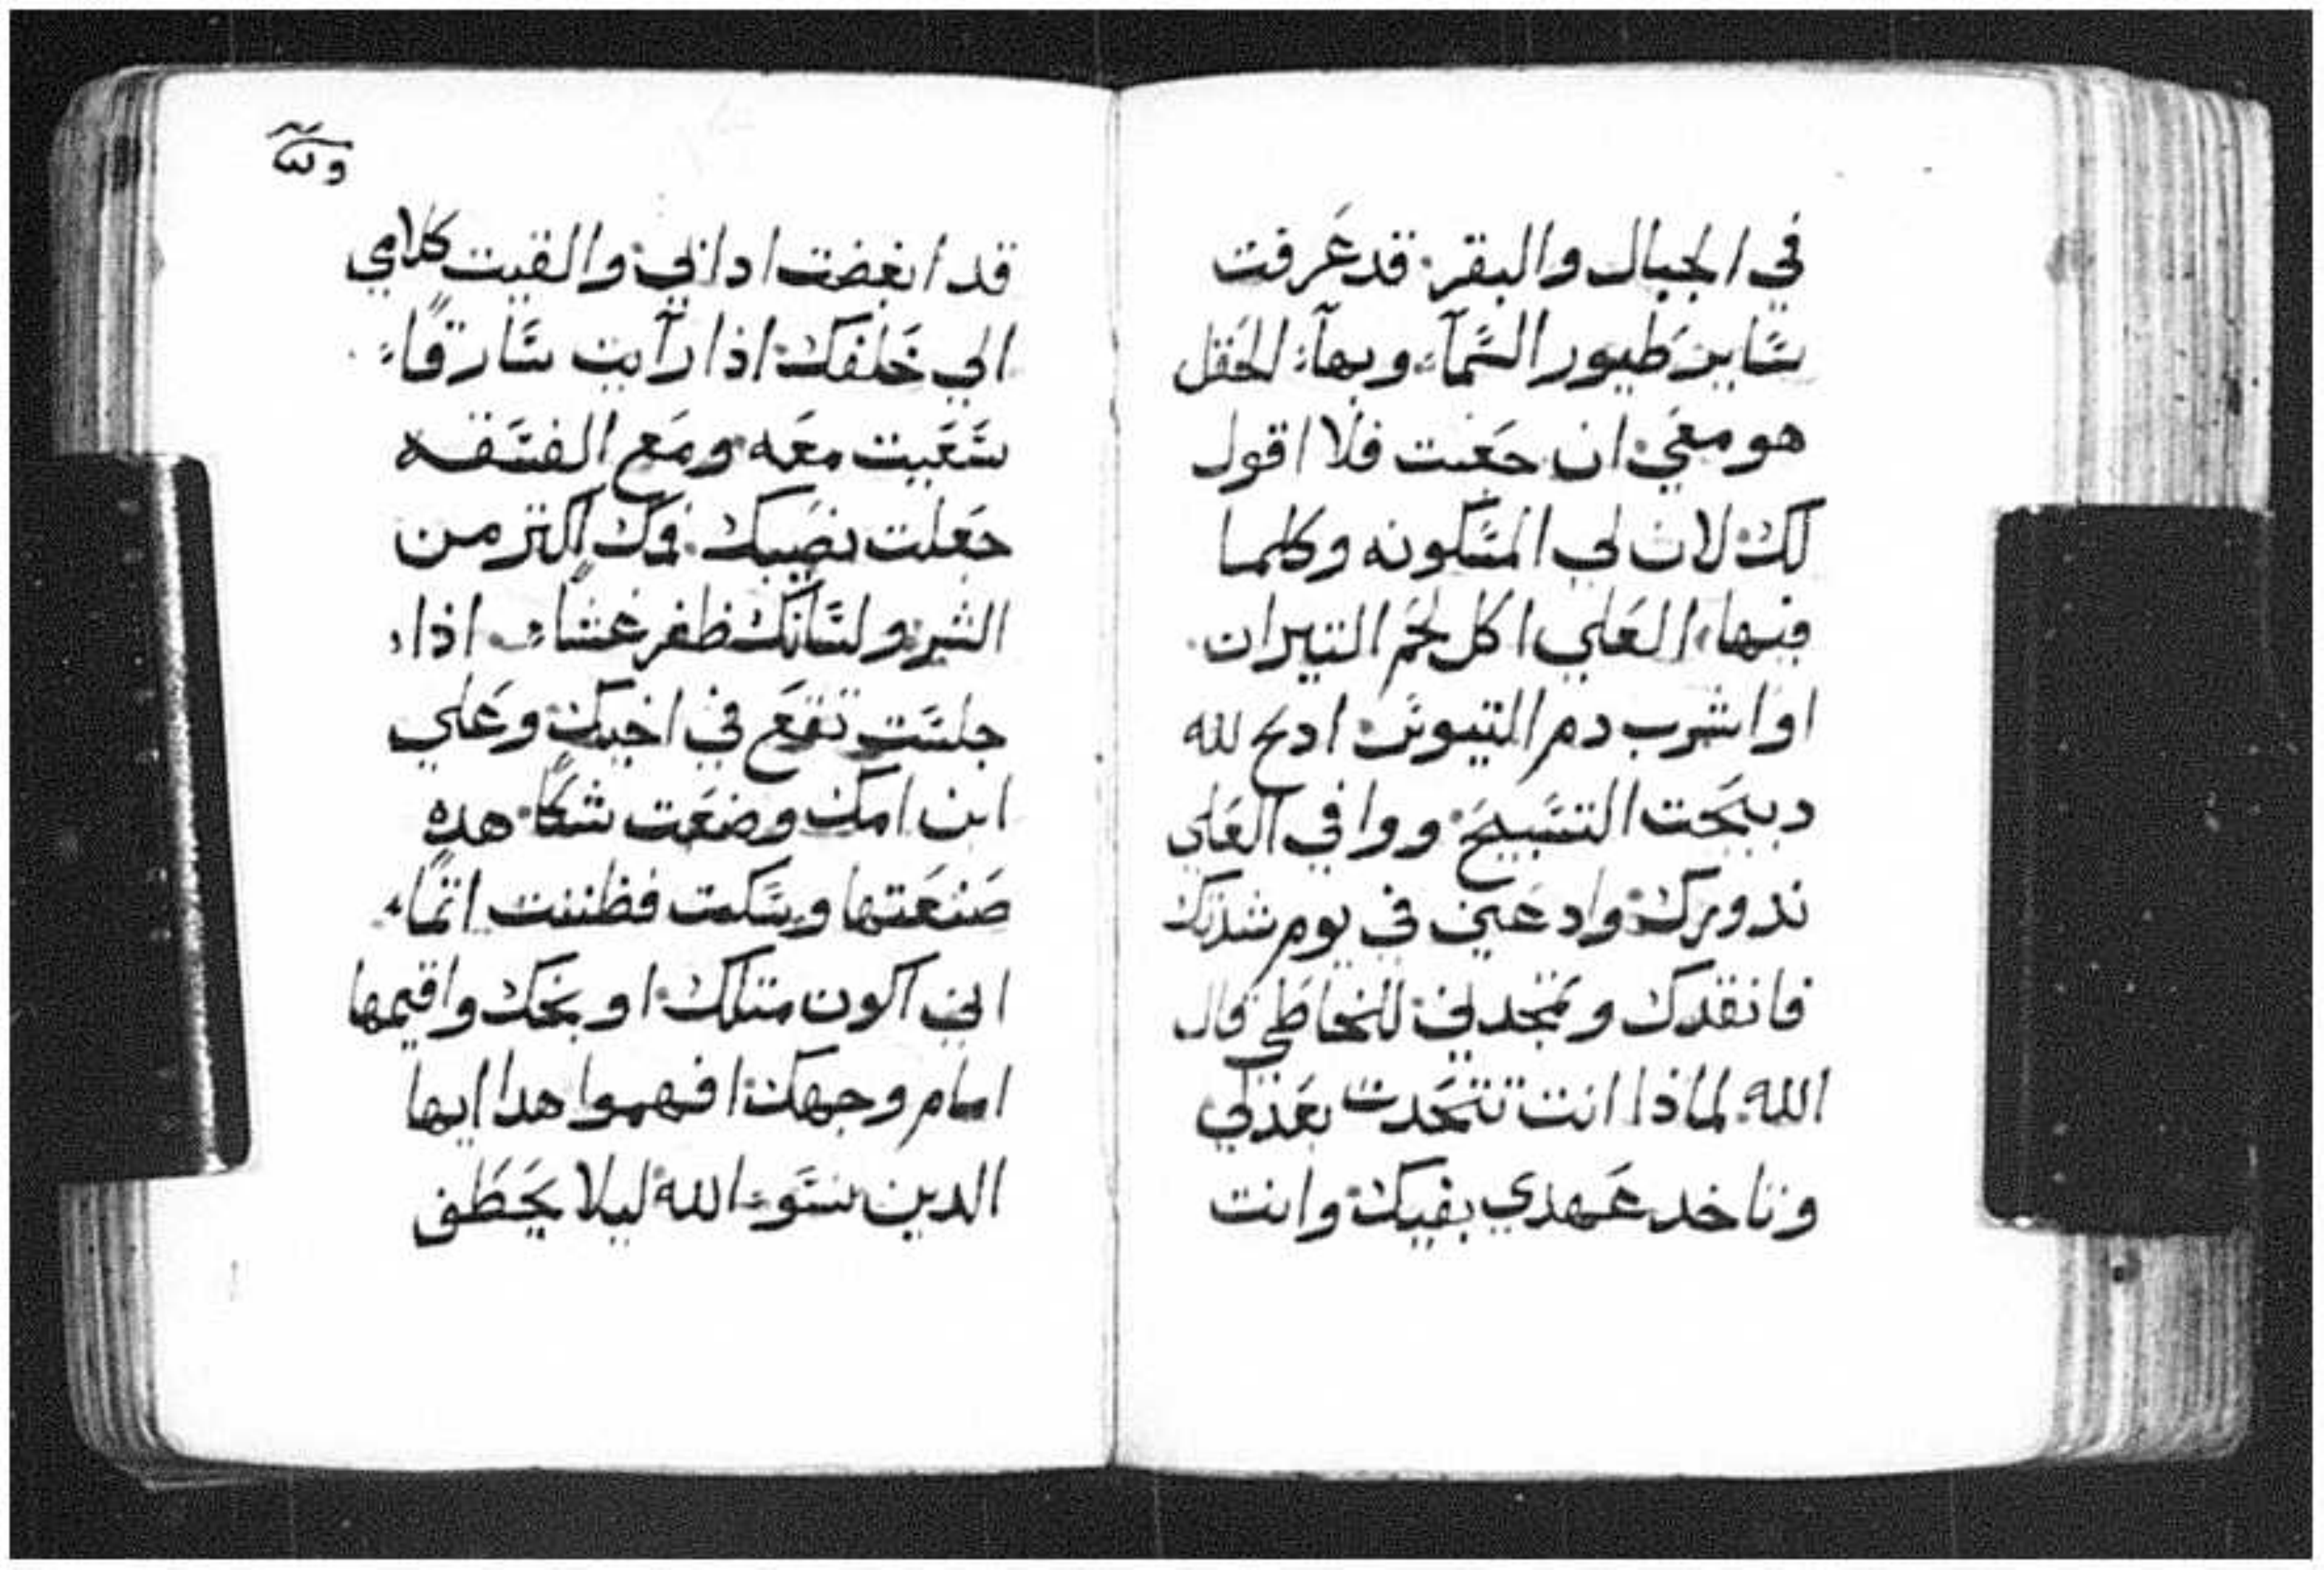 في الجبال والبقر. قد عَرفت
سَّاير طيور السَّمآء، وبهآء الحَقل
هو معَي. ان جَعت فلا اقول
لك. لان لي المسَّكونه وكلما
فيها، العَلي اكل لحَم التيران.
او اشرب دم التيوسَّ. ادبح لله
دبيحَت التسَّبيحَ. ووافي العَلي
ندورك. وادعَيني في يوم شدتك
فانقدك وتمجدني. للخاطي قال
الله. لماذا انت تتحَدت بعَدلي
وتاخد عَهدي بفيك. وانت
قد ابغضت اداتي. والقيت كلامي
الي خَلفك. اذا رآيت سَّارقًا.
سَّعَيت معَه. ومَع الفسَّقه
جعَلت نصيبك. فوك اكتر من
الشر. ولسَّانك ظفر غشًا. اذا،
جلسَّت تقعَ في اخيك. وعَلي
ابن امك وضعَت شكًا. هده
صَنعَتها وسَّكت فظننت اتمًا.
اني اكون متلك. اوبخك واقيمها
امام وجهك. افهموا هدا ايها
الدين نسَّوء الله. ليلا يخَطَف